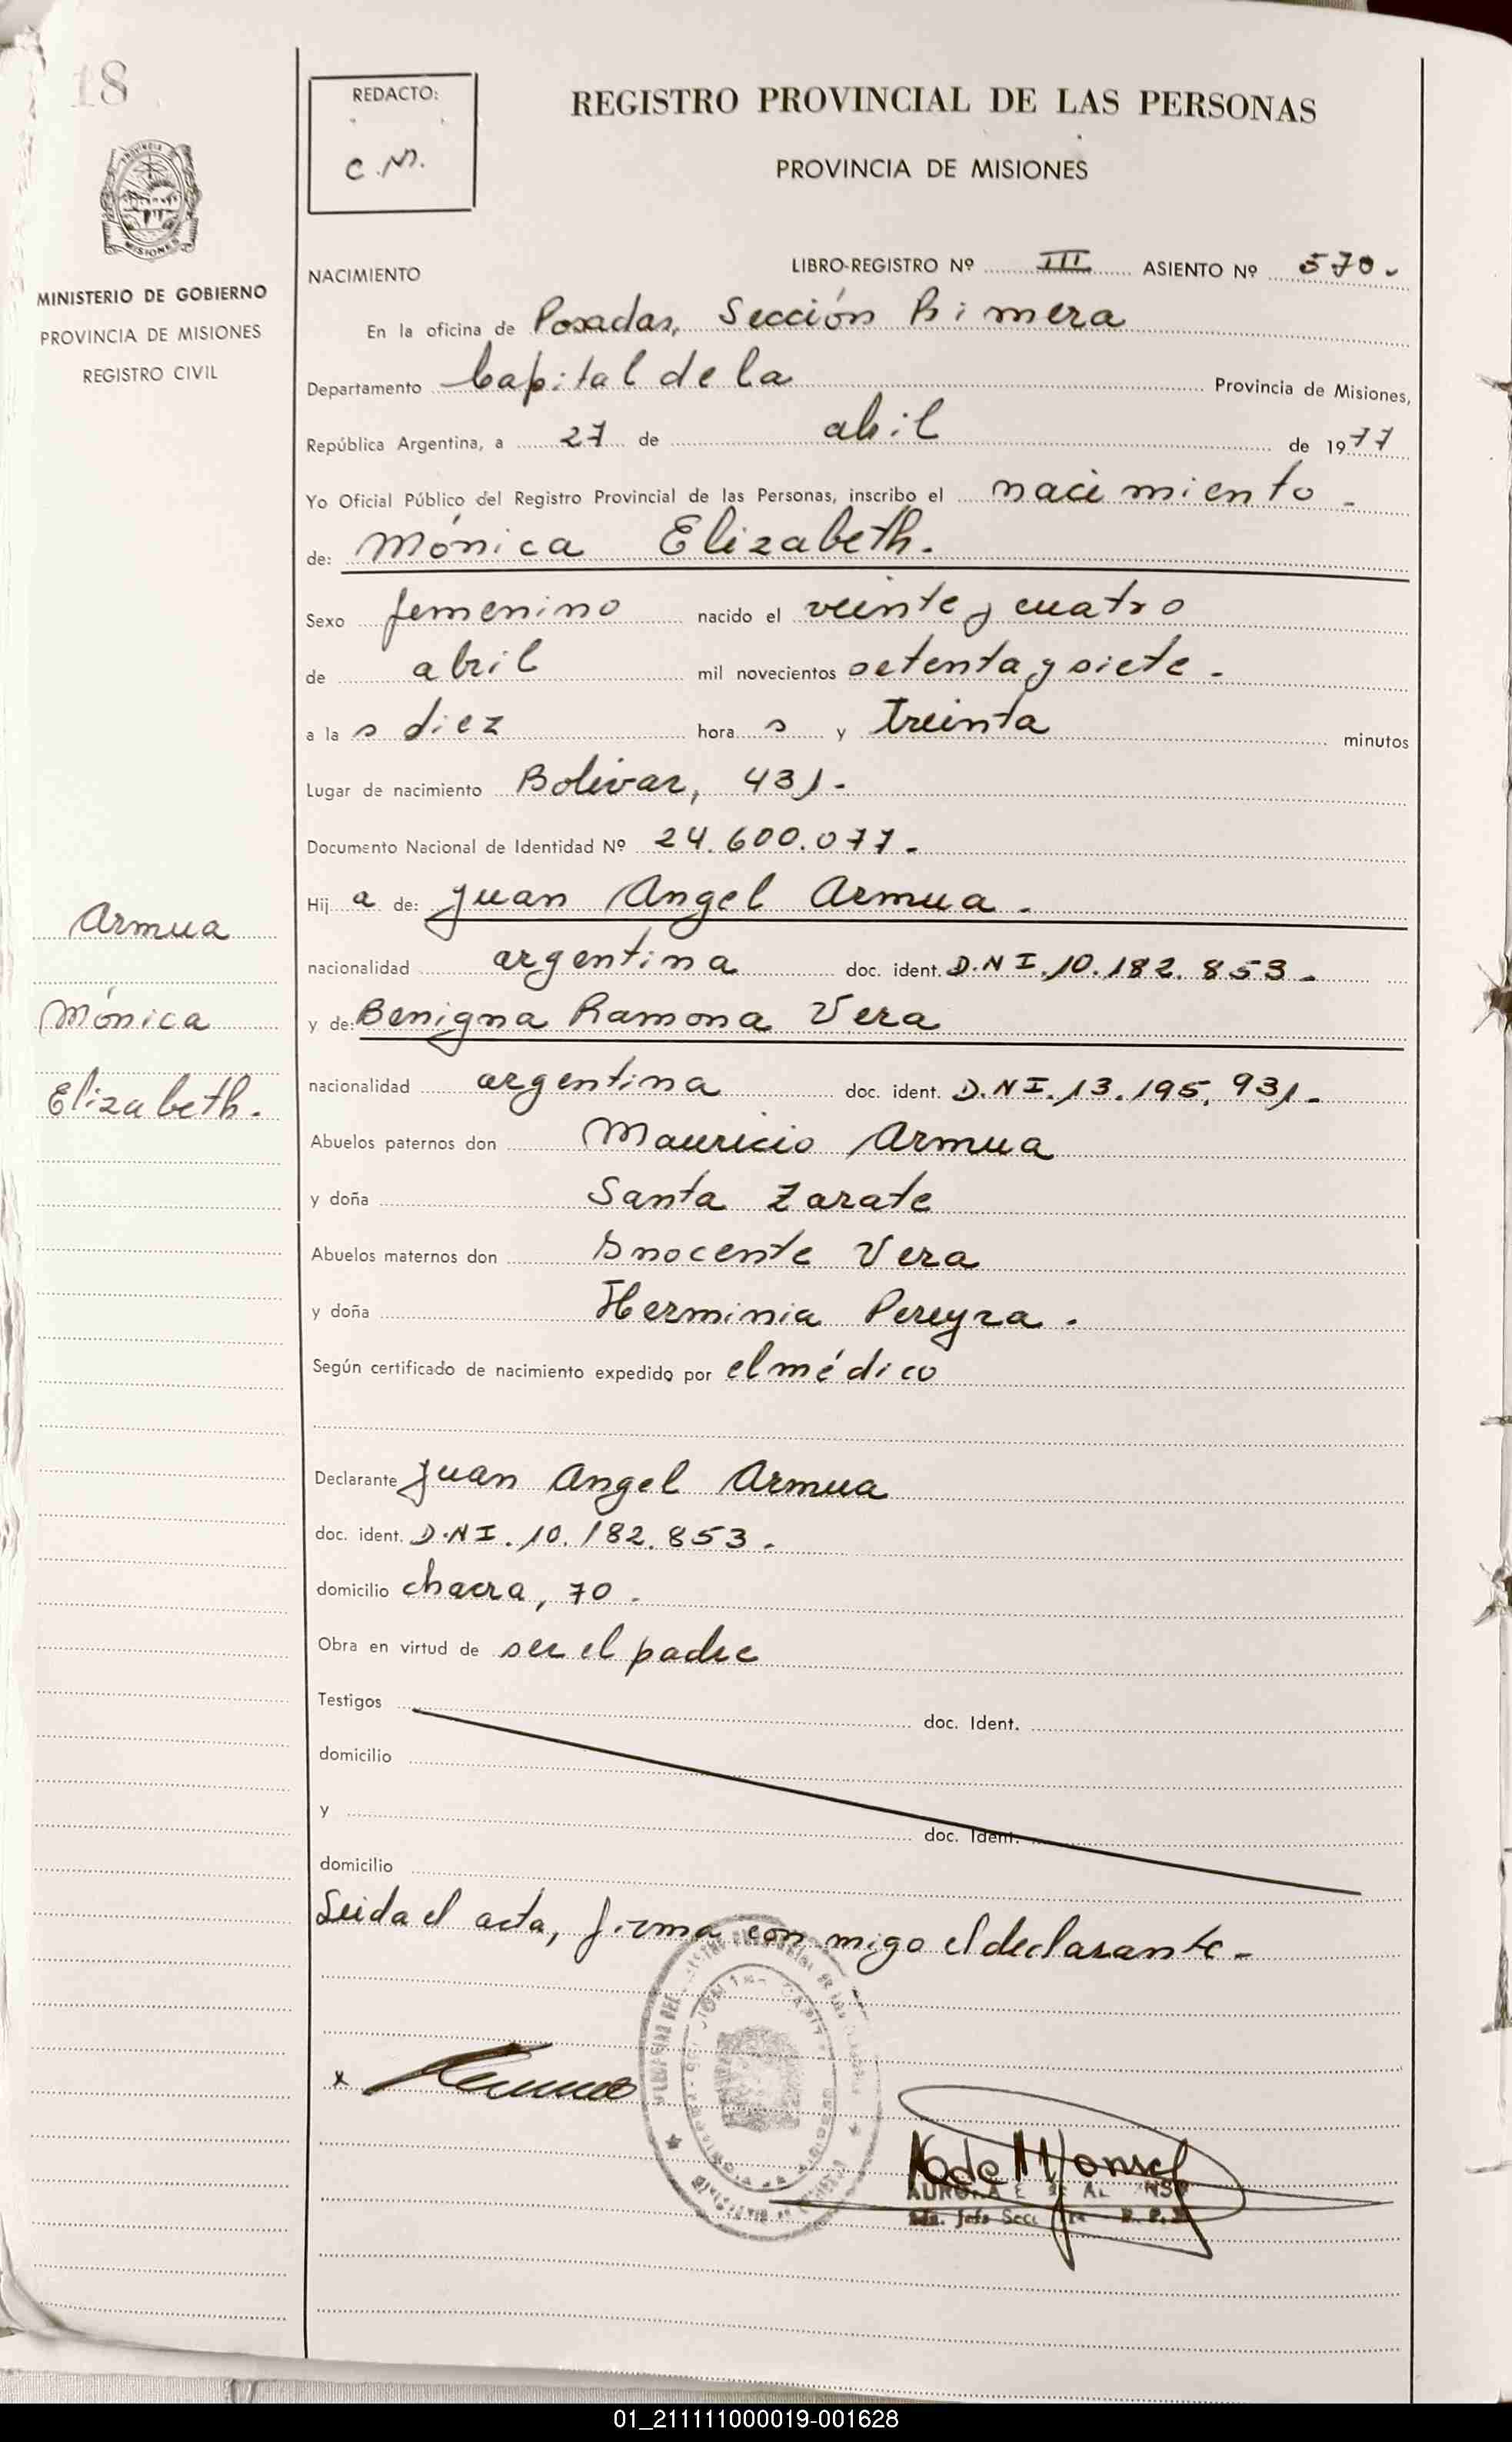 18
REDACTO:
C.M.
REGISTRO PROVINCIAL DE LAS PERSONAS
PROVINCIA DE MISIONES
PROVINCIA
MISIONES
MINISTERIO DE GOBIERNO
PROVINCIA DE MISIONES
REGISTRO CIVIL
NACIMIENTO
LIBRO-REGISTRO Nº III ASIENTO Nº 570.
En la oficina de Posadas, Sección Primera
Departamento Capital de la Provincia de Misiones,
República Argentina, a 27 de abril de 1977
Yo Oficial Público del Registro Provincial de las Personas, inscribo el nacimiento -
de: Mónica Elizabeth.
Sexo femenino nacido el veinte y cuatro
de abril mil novecientos setenta y siete -
a la s diez hora s y treinta minutos
Lugar de nacimiento Bolivar, 431.-
Documento Nacional de Identidad Nº 24.600.077.-
Hij a de: Juan Angel Armua -
nacionalidad argentina doc. ident. D.N I. 10.182.853 -
y de: Benigna Ramona Vera
nacionalidad argentina doc. ident. D.N I. 13.195.931 -
Abuelos paternos don Mauricio Armua
y doña Santa Zarate
Abuelos maternos don Inocente Vera
y doña Herminia Pereyra -
Según certificado de nacimiento expedido por el médico
Declarante Juan Angel Armua
doc. ident. D.N I. 10.182.853 -
domicilio chacra, 70 -
Obra en virtud de ser el padre
Testigos doc. Ident.
domicilio
y doc. Ident.
domicilio
Leida el acta, firma con migo el declarante -
x
Armua
Mónica
Elizabeth.
01_211111000019-001628